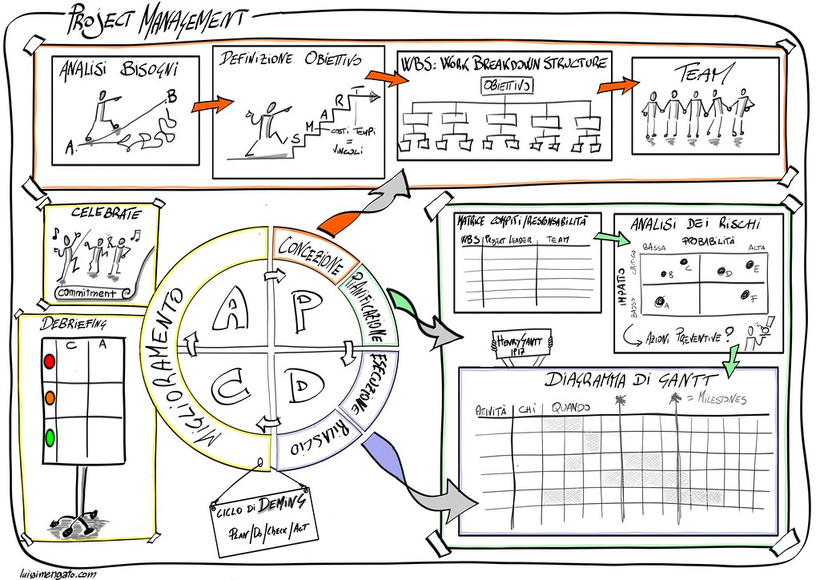 PROJECT MANAGEMENT
ANALISI BISOGNI
A
B
DEFINIZIONE OBIETTIVO
S
M
A
R
T
COSTI TEMPI
=
VINCOLI
WBS: WORK BREAKDOWN STRUCTURE
OBIETTIVO
TEAM
CELEBRATE
commitment
DEBRIEFING
C A
CONCEZIONE
PIANIFICAZIONE
ESECUZIONE
RILASCIO
MIGLIORAMENTO
A P
C D
CICLO DI DEMING
PLAN/DO/CHECK/ACT
MATRICE COMPITI/RESPONSABILITÀ
WBS PROJECT LEADER TEAM
ANALISI DEI RISCHI
PROBABILITÀ
BASSA ALTA
IMPATTO
CRITICO
BASSO
B
C
D
E
A
F
AZIONI PREVENTIVE?
HENRY GANTT
1917
DIAGRAMMA DI GANTT
ATTIVITÀ CHI QUANDO
= MILESTONES
luigimengato.com